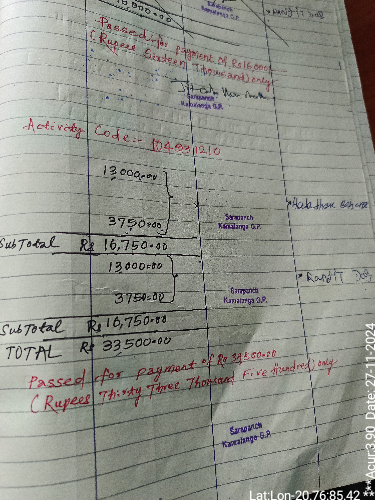 Passed for payment of Rs 16,000/-
(Rupees Sixteen Thousand) only
Sarapanch
Kamalanga G.P.
Activity Code:- 104031210
13,000.00
3750.00
Sarapanch
Kamalanga G.P.
Sub Total Rs 16,750.00
13,000.00
3750.00
Sarapanch
Kamalanga G.P.
Sub Total Rs 16,750.00
TOTAL Rs 33,500.00
Passed for payment of Rs 33,500.00
(Rupees Thirty Three Thousand Five Hundred) only
Sarapanch
Kamalanga G.P.
Lat:Lon-20.76:85.42
***Acur:3.90 Date: 27-11-2024